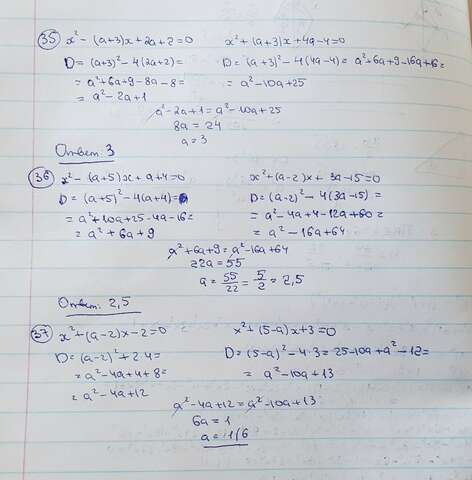 35 x² - (a+3)x + 2a + 2 = 0
x² + (a+3)x + 4a - 4 = 0
D = (a+3)² - 4(2a+2) =
D = (a+3)² - 4(4a-4) = a² + 6a + 9 - 16a + 16 =
= a² + 6a + 9 - 8a - 8 =
= a² - 10a + 25
= a² - 2a + 1
a² - 2a + 1 = a² - 10a + 25
8a = 24
a = 3
Ответ: 3
36 x² - (a+5)x + a + 4 = 0
x² + (a-2)x + 3a - 15 = 0
D = (a+5)² - 4(a+4) =
D = (a-2)² - 4(3a-15) =
= a² + 10a + 25 - 4a - 16 =
= a² - 4a + 4 - 12a + 60 =
= a² + 6a + 9
= a² - 16a + 64
a² + 6a + 9 = a² - 16a + 64
22a = 55
a = 55/22 = 5/2 = 2,5
Ответ: 2,5
37 x² + (a-2)x - 2 = 0
x² + (5-a)x + 3 = 0
D = (a-2)² + 2·4 =
D = (5-a)² - 4·3 = 25 - 10a + a² - 12 =
= a² - 4a + 4 + 8 =
= a² - 10a + 13
= a² - 4a + 12
a² - 4a + 12 = a² - 10a + 13
6a = 1
a = 1/6